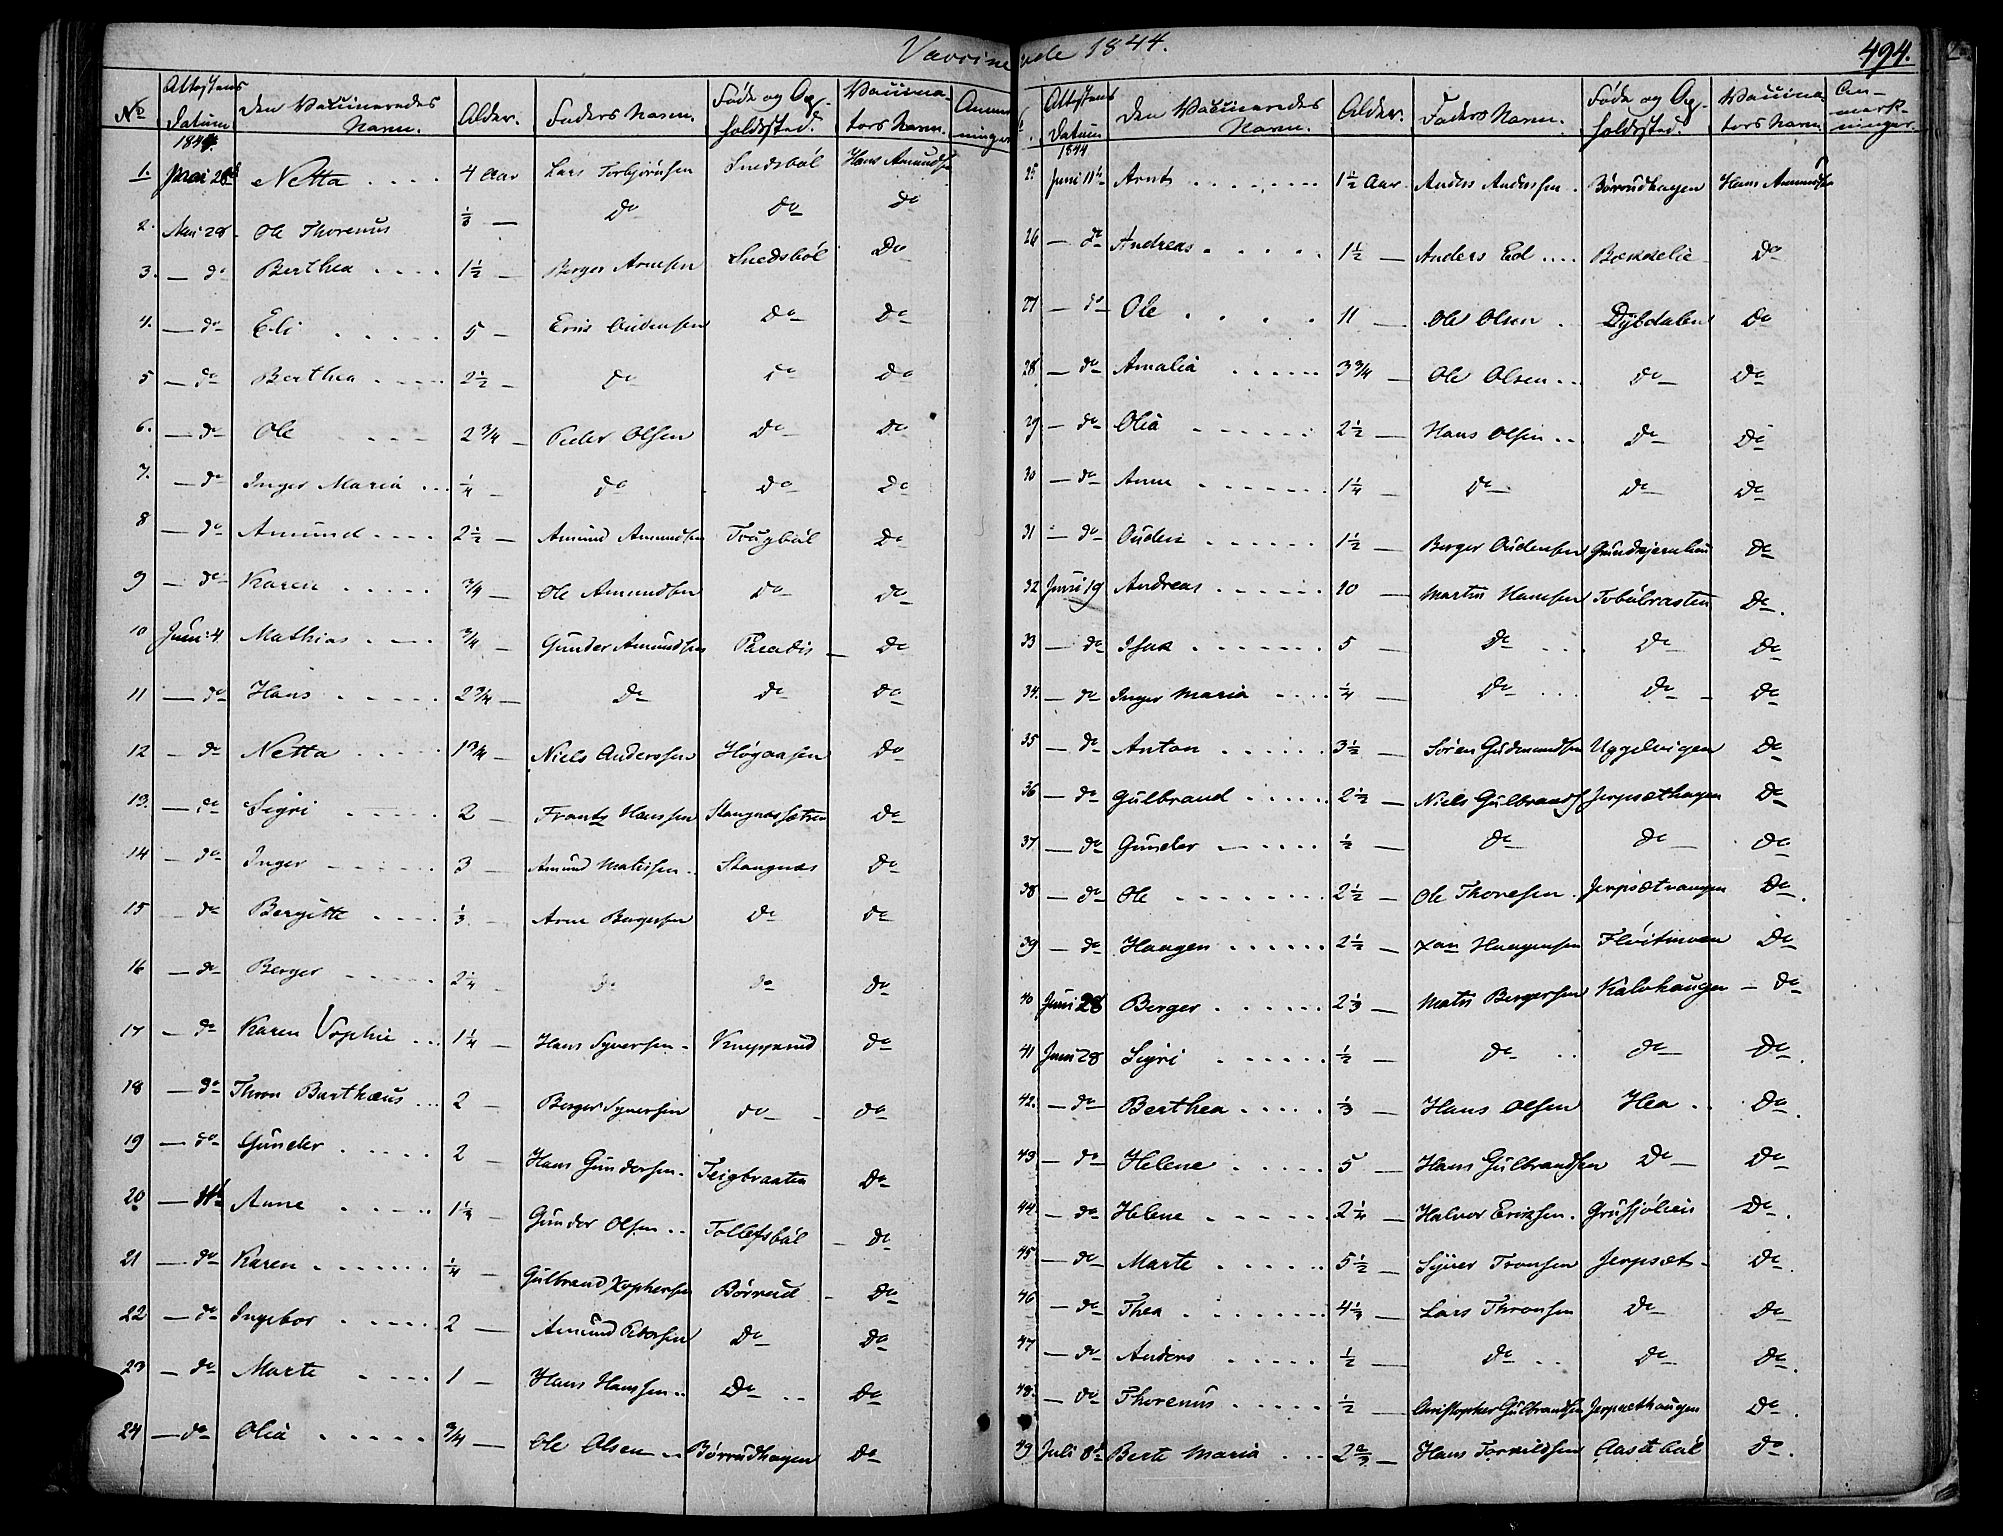 Vaccinerede 1844.
494.
No Attestens Datum Den Vaccineredes Navn. Alder. Faders Navn. Føde og Opholdsted. Vaccinators Navn. Anmærkninger
1844
1. Mai 28 Netta 4 Aar Lars Torbjørnsen Snedsböl Hans Amundsen
2. Mai 28 Ole Thorenus ½ — Do Do Do
3. — do Berthea 1½ — Berger Arnesen Snedsböl Do
4. — do Eli 5 — Oudensen Do Do
5 — do Berthea 2½ — Do do Do
6. — do Ole 2¾ — Peder Olsen Do Do
7. — do Inger Maria ¼ — Do Do Do
8 — do Amund 2½ — Amund Amundsen Trugböl Do
9 — do Karen ¾ — Ole Amundsen Do Do
10 Juni 4 Mathias ¾ — Gunder Amundsen Paradis — Do
11 — do Hans 2¾ — Do Do Do
12 — do Netta 1¾ — Niels Anderssen Högaasen Do
13. — do Sigri 2 — Frantz Hanssen Stangnessætren Do
14 — do Inger 3 — Amund Matissen Stangnæs Do
15 — do Bergitte ⅓ Arne Bergersen Do Do
16 — do Berger 2¼ — do do Do
17 — do Karen Sophie 1¼ — Hans Syversen Knappsund Do
18 — do Thron Barthæus 2 — Berger Syversen do — Do
19 — do Gunder 2 — Hans Gundersen Teigbraaten Do
20 — Anne Gunder Olsen Tollefsböl — Do
21 — do Karen ¼ — Gulbrand Xophersen Börrud — Do
22 — do Ingebor 2 — Amund Pedersen Do Do
23 — do Marte 1 — Hans Hanssen Do Do
24 — do Olia ¾ — Ole Olsen Börrudhagen Do
Attestens Datum Den Vaccineredes Navn. Alder. Faders Navn. Føde og Opholdsted. Vaccinators Navn. Anmærkninger.
1844
25 Juni 11 Arnt 1½ Aar. Anders Anderssen Börrudhagen Hans Amundsen
26 — do Andreas 1½ — Anders Ed Bækkelie Do
27 — do Ole 11 — Ole Olsen Dybdalen Do
28 — do Amalia 3¾ — Ole Olsen Do Do
29 — do Olia 2½ — Hans Olsen Do Do
30 — do Anne 1¼ — Do Do Do
31 — do Ouden 1½ — Berger Oudensen Do
32 Juni 19 Andreas 10 — Martin Hansen Do.
33 — do Isak 5 — Do Do Do
34. — do Inger Maria ¼ — Do Do — Do
35 — do Anton 3½ — Sören Gudmundsen Uggelvigen Do
36 — do Gulbrand 2½ — Niels Gulbrands Jerpsethagen Do
37 — do Gunder ½ — Do Do Do
38 — do Ole 2½ — Ole Thoresen Jerpsætvangen Do.
39 — do Haagen 2½ — Haagensen Flöitmoen Do
40 Juni 28 Berger 2⅓ — Mats Bergersen Kalvhaugen — Do
41 Juni 28 Sigri ½ — Do Do Do.
42. — do Berthea ⅓ — Hans Olsen Hea Do.
43 — do Helene 5 — Hans Gulbrandsen Do — Do
44 — do Helene 2¼ — Halvor Eriksen Do.
45 — do Marte 5½ — Syver Tronsen Jerpsæt Do.
46 — do Thea Lars Thronsen Do Do
47 — do Anders ½ — Do Do Do.
48. — do Thorenus ½ — Christopher Gulbrandsen Jerpsæthaugen Do.
49 Juli 8 Berte Maria 2⅔ — Hans Torkildsen Do.